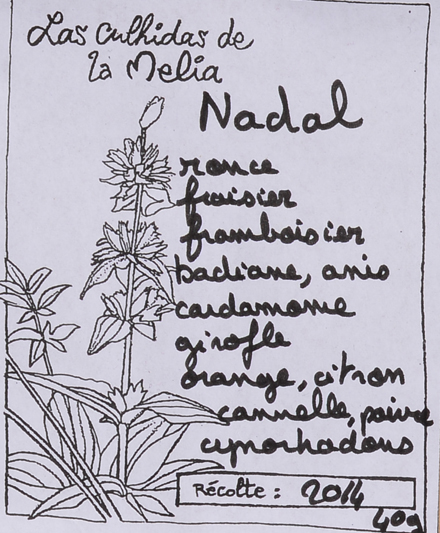 Las culhidas de
la Melia
Nadal
ronce
fraisier
framboisier
badiane, anis
cardamome
girofle
orange, citron
cannelle, poivre
cynorhodons
Récolte : 2014
40g